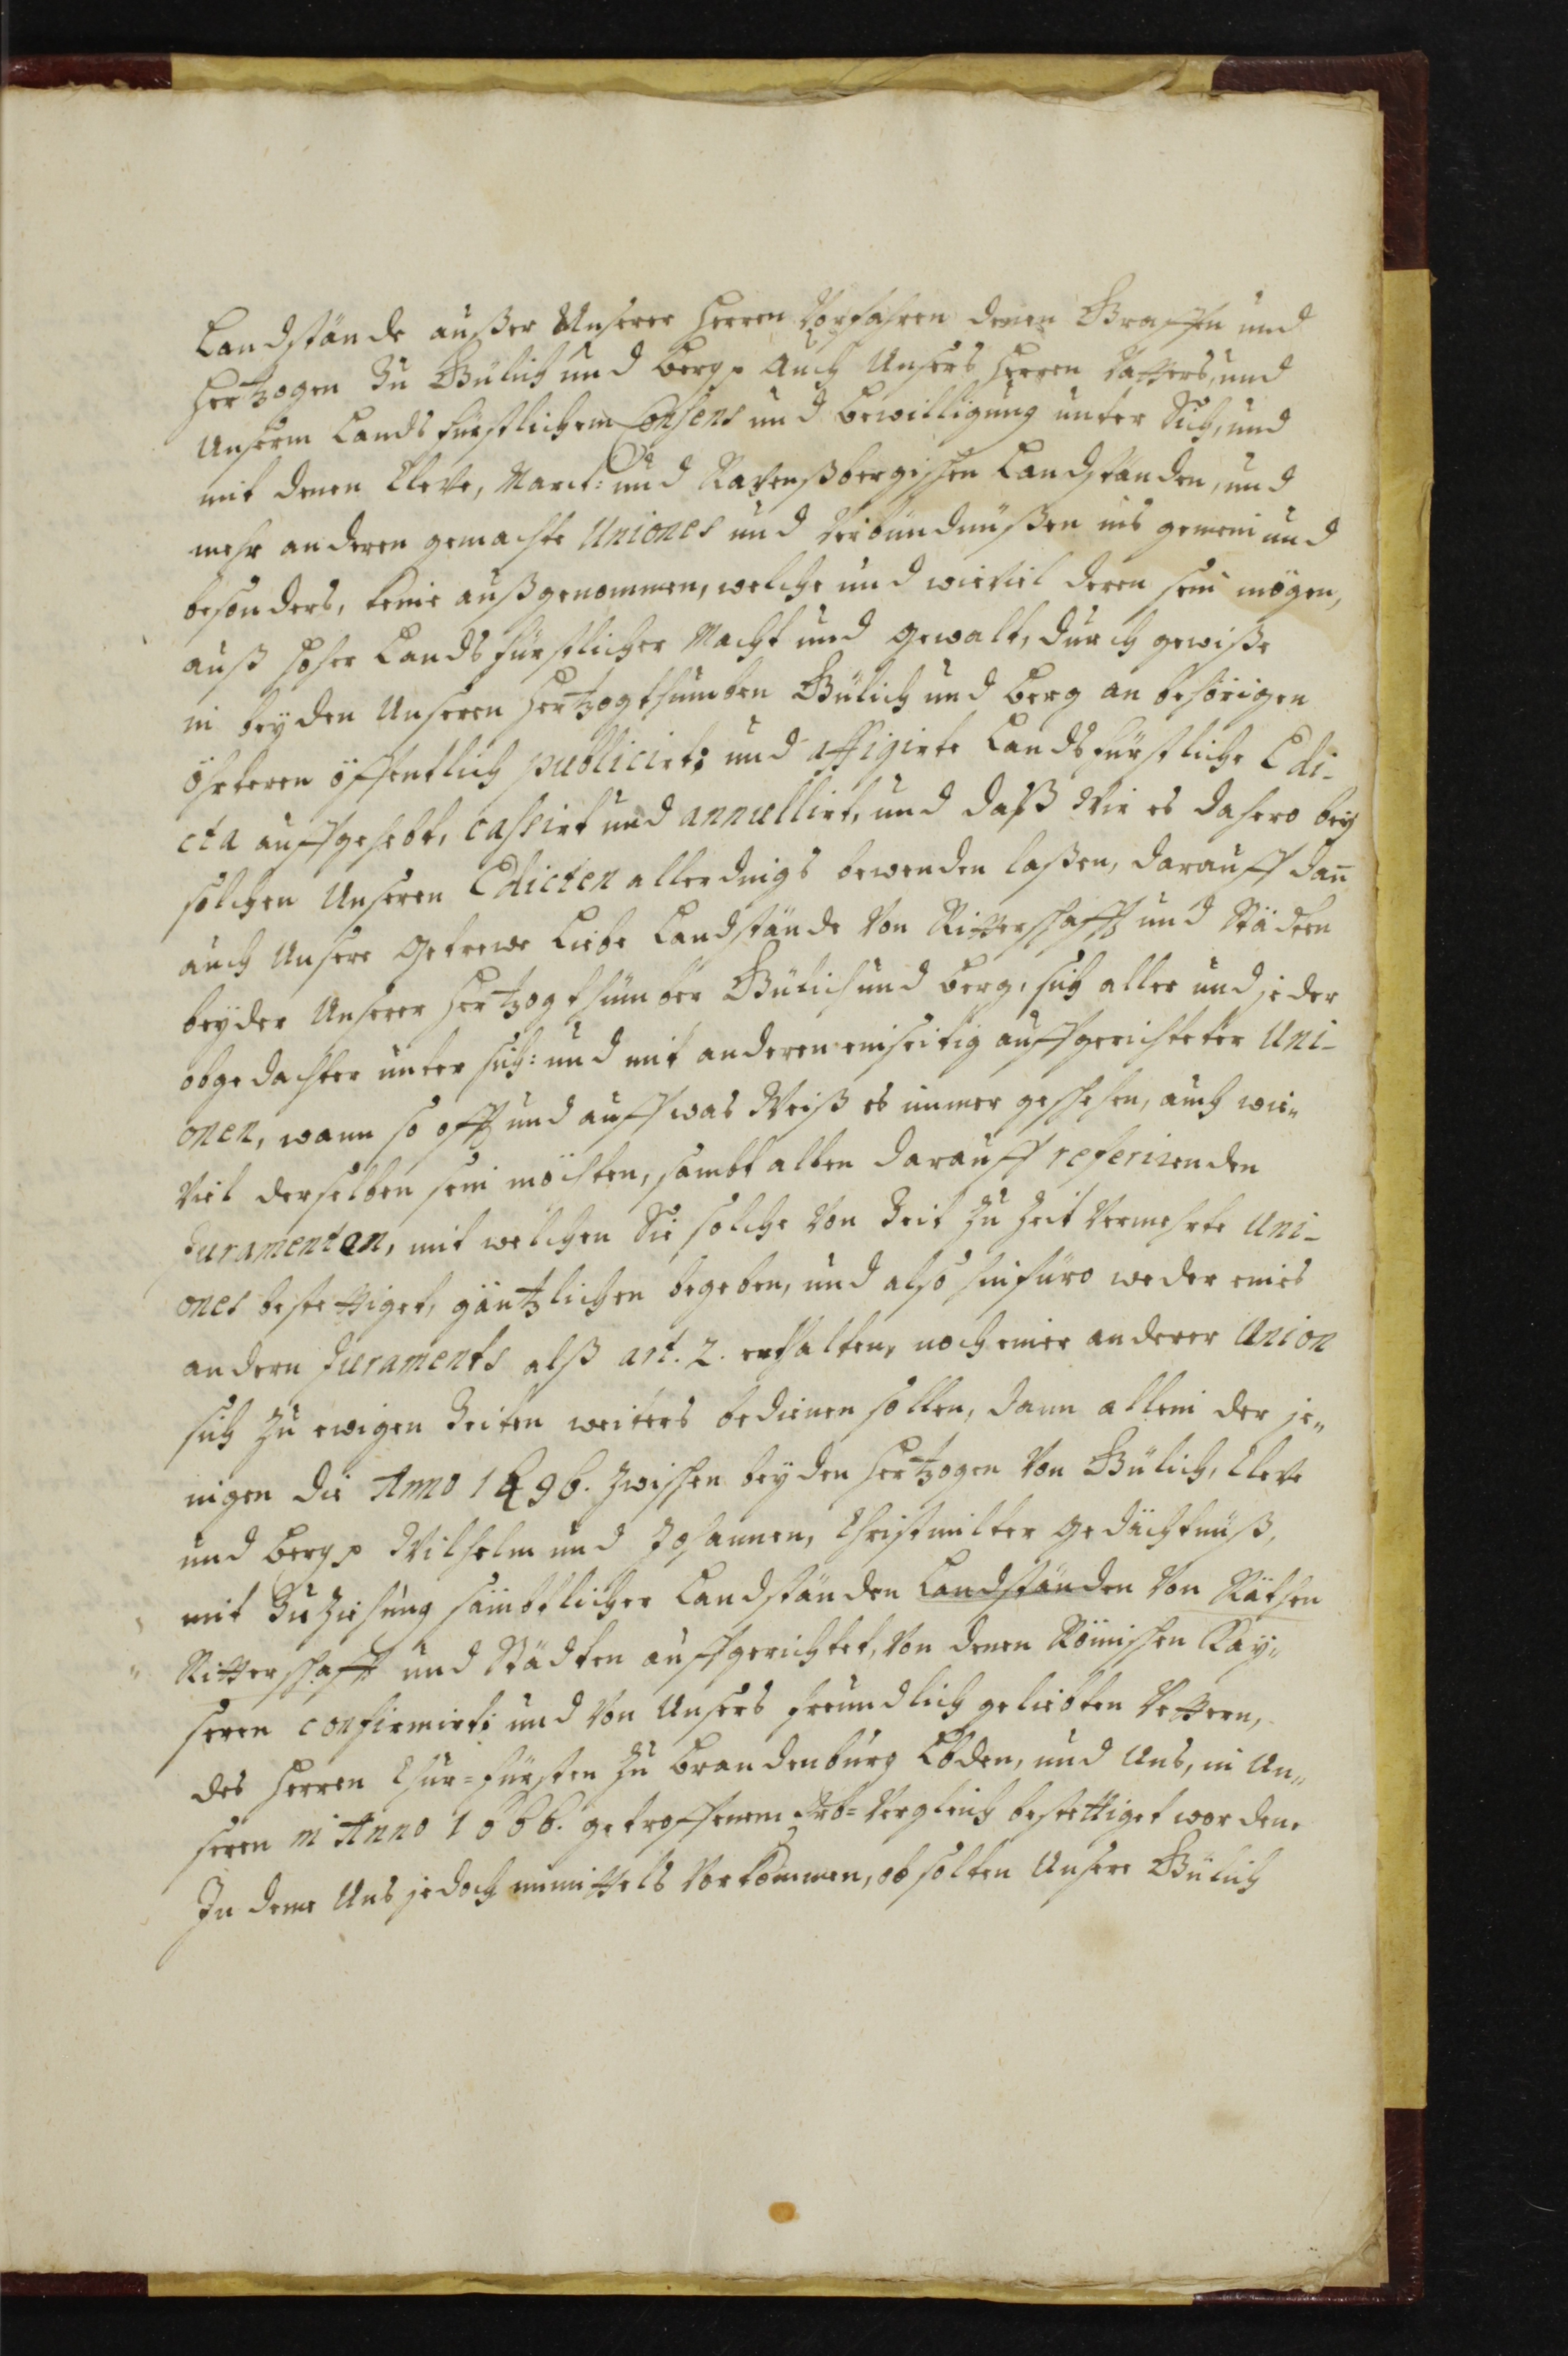 Landstände außer Unserer Herren Vorfahren denen Graffen und
Hertzogen Zu Gülich und Berg p. Auch Unsers Herren Vatters, und
Unserm Landsfürstlichem Consens und Bewilligung unter Sich, und
mit denen Cleve, Marck: und Ravenßbergischen Landständen, und
mehr anderen gemachte Uniones und Verbündnüßen ins gemein und
besonders, keine außgenommen, welche und wieviel deren sein mögen,
auß hoher Landsfürstlicher Macht und Gewalt, durch gewiße
in beyden Unseren Hertzogthumben Gülich und Berg an behörigen
öhrteren öffentlich publicirt: und affigirte Landsfürstliche Edi-
cta auffgehebt, cassirt und annullirt, und daß Wir es dahero bey
solchen Unseren Edicten allerdings bewenden laßen, darauff dan̄
auch Unsere Getrewe Liebe Landstände Von Ritterschafft und Städten
beyder Unserer Hertzogthümber Gülich und Berg, sich aller und jeder
obgedachter unter sich: und mit anderen einseitig auffgerichteter Uni-
onen, wann so offt und auff was Weiß es immer geschehen, auch wie„
Viel derselben sein möchten, sambt allen darauff referirenden
Juramenten, mit welchen Sie solche Von Zeit Zu Zeit Vermehrte Uni-
ones bestettiget, gäntzlichen begeben, und also hinfüro weder eines
andern Juraments alß art. 2. enthalten, noch einer anderer Union
sich Zu ewigen Zeiten weiters bedienen sollen, dann allein der je„
nigen die Anno 1496. Zwischen beyden Hertzogen Von Gülich, Cleve
und Berg p Wilhelm und Johannen, Christmilter Gedächtnüß,
mit Zuziehung sämbtlicher Landständen Landständen Von Räthen
Ritterschafft und Städten auffgerichtet, Von denen Römischen Kay„
seren confirmirt: und Von Unsers freundlich geliebten Vettern,
des Herren Chur=fürsten Zu Brandenburg Lbden, und Uns, in Un„
seren in Anno 1666. getroffenem Erb=Vergleich bestettiget worden.
In deme Uns jedoch inmittels Vorkommen, ob solten Unsere Gülich